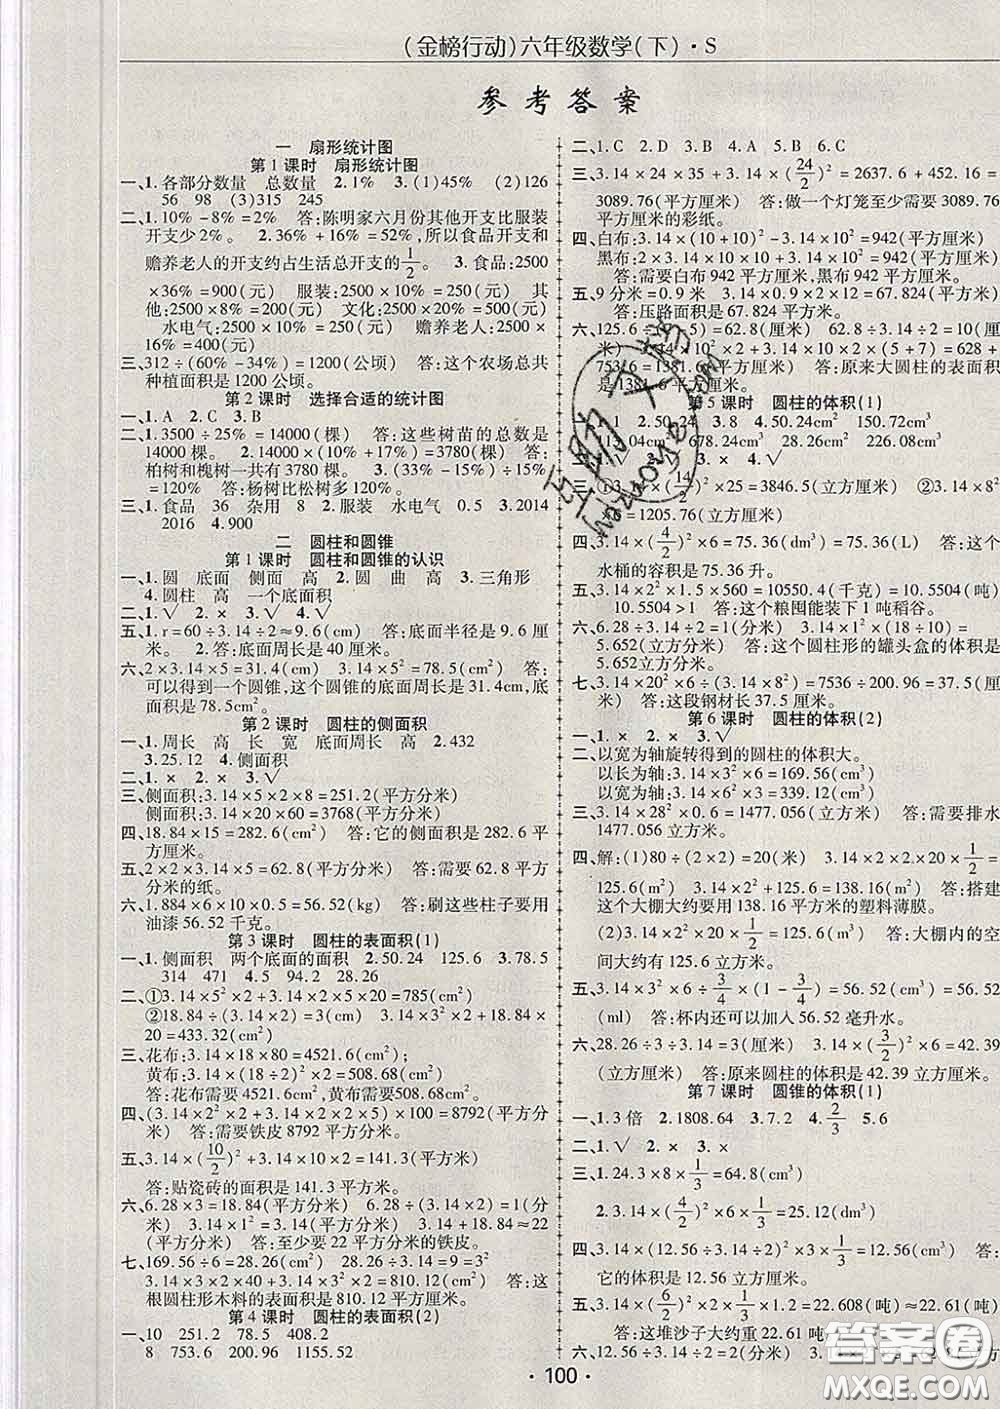 （金榜行动）六年级数学（下）·S
参考答案
一 扇形统计图
第1课时 扇形统计图
一、1.各部分数量 总数量 2.1% 3.(1)45% (2)126
56 98 (3)315 245
二、1.10%-8%=2% 答:陈明家六月份其他开支比服装
开支少2%。 2.36%+16%=52%,所以食品开支和
赡养老人的开支约占生活总开支的1/2。 3.食品:2500
×36%=900(元) 服装:2500×10%=250(元) 其
他:2500×8%=200(元) 文化:2500×20%=500(元)
水电气:2500×10%=250(元) 赡养老人:2500
×16%=400(元)
三、312÷(60%-34%)=1200(公顷) 答:这个农场总共
种植面积是1200公顷。
第2课时 选择合适的统计图
一、1.A 2.C 3.B
二、1.3500÷25%=14000(棵) 答:这些树苗的总数是
14000棵。 2.14000×(10%+17%)=3780(棵) 答:
柏树和槐树一共有3780棵。 3.(33%-15%)÷15%
=120% 答:杨树比松树多120%。
三、1.食品 36 杂用 8 2.服装 水电气 0.5 3.2014
2016 4.900
二 圆柱和圆锥
第1课时 圆柱和圆锥的认识
一、1.圆 底面 侧面 高 2.圆 曲 高 3.三角形
4.圆柱 高 一个底面积
二、1.√ 2.× 3.√ 4.√
五、1.r=60÷3.14÷2≈9.6(cm) 答:底面半径是9.6厘
米。 2.答:底面周长是40厘米。
六、2×3.14×5=31.4(cm) 3.14×5²=78.5(cm²) 答:
可以得到一个圆锥,这个圆锥的底面周长是31.4cm,底
面积是78.5cm²。
第2课时 圆柱的侧面积
一、1.周长 高 长 宽 底面周长 高 2.432
3.25.12 4.侧面积
二、1.× 2.× 3.√
三、侧面积:3.14×5×2×8=251.2(平方分米)
侧面积:3.14×20×60=3768(平方分米)
四、18.84×15=282.6(cm) 答:它的侧面积是282.6平
方厘米。
五、2×2×3.14×5=62.8(平方分米) 答:需要62.8平方
分米的纸。
六、1.884×6×10×0.5=56.52(kg) 答:刷这些柱子要用
油漆56.52千克。
第3课时 圆柱的表面积(1)
一、1.侧面积 两个底面的面积 2.50.24 125.6 3.78.5
314 471 4.5 94.2 28.26
二、①3.14×5²×2+3.14×5×2×20=785(cm²)
②18.84÷(3.14×2)=3(cm) 3.14×3²×2+18.84×20
=433.32(cm²)
三、花布:3.14×18×80=4521.6(cm²);
黄布:3.14×(18÷2)²×2=508.68(cm²)
答:花布需要4521.6cm²,黄布需要508.68cm²。
四、(3.14×2²×2+3.14×2×2×5)×100=8792(平方分
米) 答:需要铁皮8792平方分米。
五、3.14×(10/2)²+3.14×10×2=141.3(平方米)
答:贴瓷砖的面积是141.3平方米。
六、6.28×3=18.84(平方分米) 6.28÷(3.14×2)=1(分
米) 3.14×1²=3.14(平方分米) 3.14+18.84≈22
(平方分米) 答:至少要22平方分米的铁皮。
七、169.56÷6=28.26(cm²) 28.26÷3.14=9=3²
3.14×3×2×40+3.14×3²×2=810.12(cm²) 答:这
根圆柱形木料的表面积是810.12平方厘米。
第4课时 圆柱的表面积(2)
一、10 251.2 78.5 408.2
8 753.6 200.96 1155.52
二、1.C 2.D 3.A 4.B 5.B 6.C
三、3.14×24×35+3.14×(24/2)²=2637.6+452.16=
3089.76(平方厘米) 答:做一个灯笼至少需要3089.76
平方厘米的彩纸。
四、白布:3.14×(10+10)²-3.14×10²=942(平方厘米)
黑布:2×3.14×10×10+3.14×10²=942(平方厘米)
答:需要白布942平方厘米,黑布942平方厘米。
五、9分米=0.9米 3.14×0.9×2×12=67.824(平方米)
答:压路面积是67.824平方米。
六、125.6÷ 5)=62.8(厘米) 62.8÷3.14÷2=10(厘
米) 3.14×10²×2+3.14×10×2×(5+7)=628+
753.6=1381.6(平方厘米) 答:原来大圆柱的表面积
是1381.6平方厘米。
第5课时 圆柱的体积(1)
1 2.50.24 3.8 4.50.24cm³ 150.72cm³
.04cm³ 678.24cm³ 28.26cm 226.08cm³
× 3.× 4.√
三、①3.14×(14/2)²×25=3846.5(立方厘米) ②3.14×8²
×6=1205.76(立方厘米)
四、3.14×(4/2)²×6=75.36(dm³)=75.36(L) 答:这个
水桶的容积是75.36升。
五、3.14×2²×1.5×560=10550.4(千克)=10.5504(吨)
10.5504>1 答:这个粮囤能装下1吨稻谷。
六、6.28÷3.14÷2=1(分米) 3.14×1²×(18÷10)=
5.652(立方分米) 答:这个圆柱形的罐头盒的体积是
5.652立方分米。
七、3.14×20²×6÷(3.14×8²)=7536÷200.96=37.5(厘
米) 答:这段钢材长37.5厘米。
第6课时 圆柱的体积(2)
一、1.× 2.× 3.√
二、以宽为轴旋转得到的圆柱的体积大。
以长为轴:3.14×3²×6=169.56(cm³)
以宽为轴:3.14×6²×3=339.12(cm³)
三、3.14×28²×0.6=1477.056(立方米) 答:需要排水
1477.056立方米。
四、解:(1)80÷(2×2)=20(米) 3.14×2×2×20×1/2=
125.6(m²) 3.14×2²+125.6=138.16(m²) 答:搭建
这个大棚大约要用138.16平方米的塑料薄膜。
(2)3.14×2²×20×1/2=125.6(m³) 答:大棚内的空
间大约有125.6立方米。
五、3.14×3²×6÷3/4×(1-3/4)=56.52(cm³)=56.52
(ml) 答:杯内还可以装56.52毫升水。
六、28.26÷3÷3.14=3(厘米) 3.14×(3/2)²×6=42.39
(立方厘米) 答:原来圆柱的体积是42.39立方厘米。
第7课时 圆锥的体积(1)
一、1.3倍 2.1808.64 3.7.2 4.2/3 5.6
二、1.√ 2.× 3.×
三、1.24.3×8×1/3=64.8(cm³)
2.3.14×(4/2)²×6×1/3=25.12(dm³)
四、3.14×(12.56÷3.14÷2)²×3×1/3=12.56(cm³) 答:
它的体积是12.56立方厘米。
五、3.14×(6/2)²×1.2×1/3×2=22.608(吨)≈22.61(吨)
答:这堆沙子大约重22.61吨。
六、12.56÷3.14÷2=2(分米)
·100·
答案圈
MXQE.COM